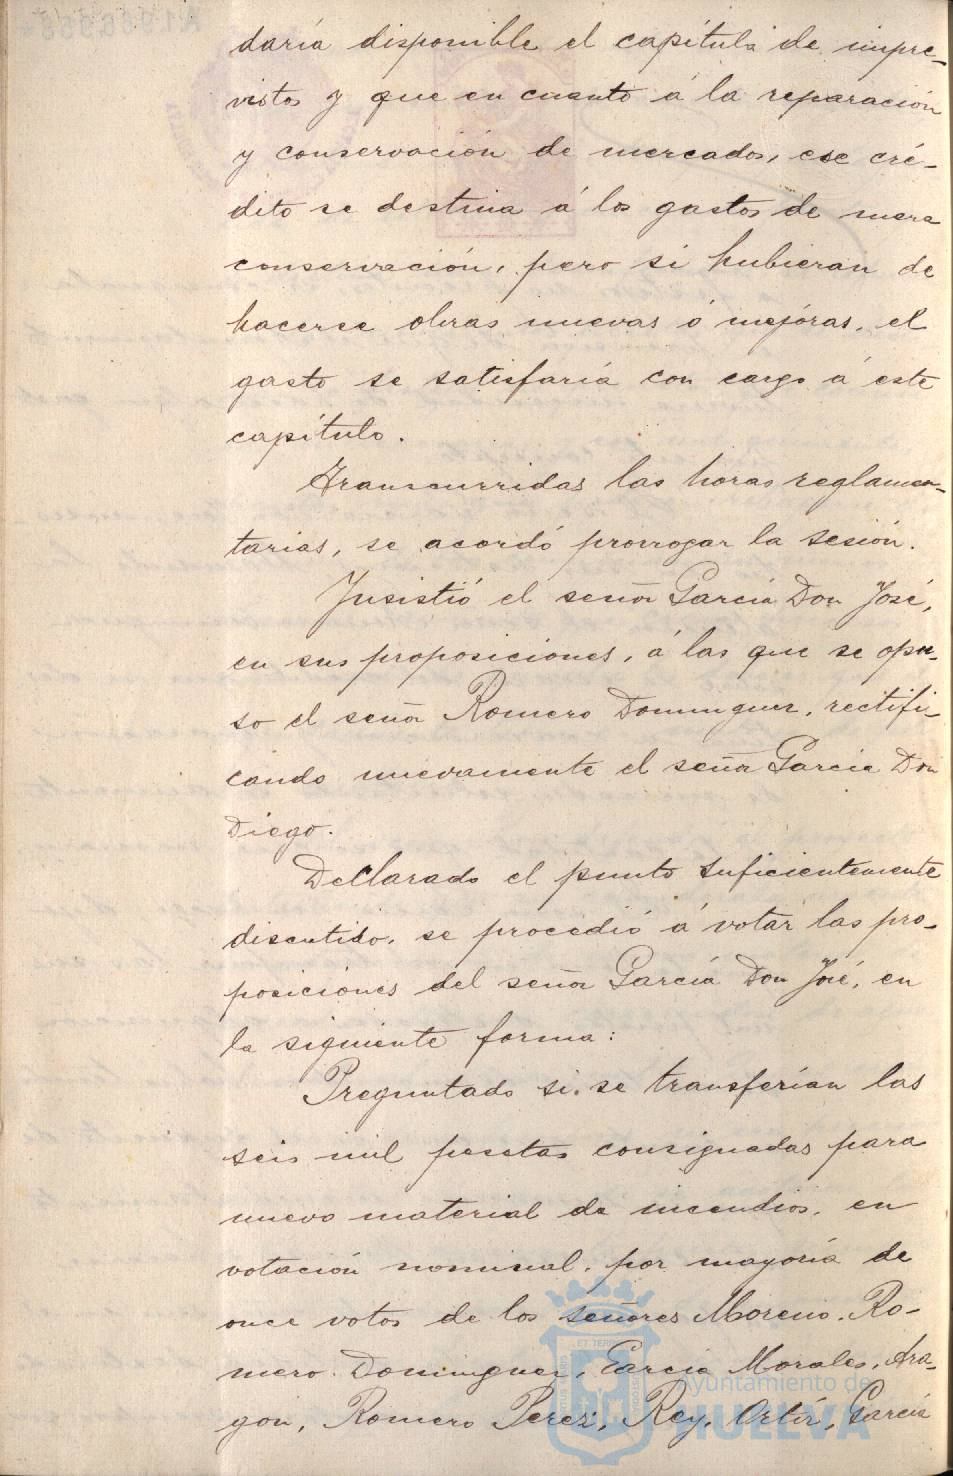 daría disponible el capítulo de impre-
vistos y que en cuanto á la reparación
y conservación de mercados, ese cré-
dito se destina á los gastos de mera
conservación, pero si hubieran de
hacerse obras nuevas ó mejoras, el
gasto se satisfaría con cargo á este
capítulo.
Transcurridas las horas reglamen-
tarias, se acordó prorrogar la sesión.
Insistió el señor García Don José,
en sus proposiciones, á las que se opu-
so el señor Romero Dominguez, rectifi-
cando nuevamente el señor García Don
Diego.
Declarado el punto suficientemente
discutido, se procedió á votar las pro-
posiciones del señor García Don José, en
la siguiente forma:
Preguntado si se transferían las
seis mil pesetas consignadas para
nuevo material de incendios, en
votación nominal, por mayoría de
once votos de los señores Moreno, Ro-
mero Dominguez, García Morales, Ara-
gon, Romero Perez, Rey, Ortíz, García
Ayuntamiento de
HUELVA